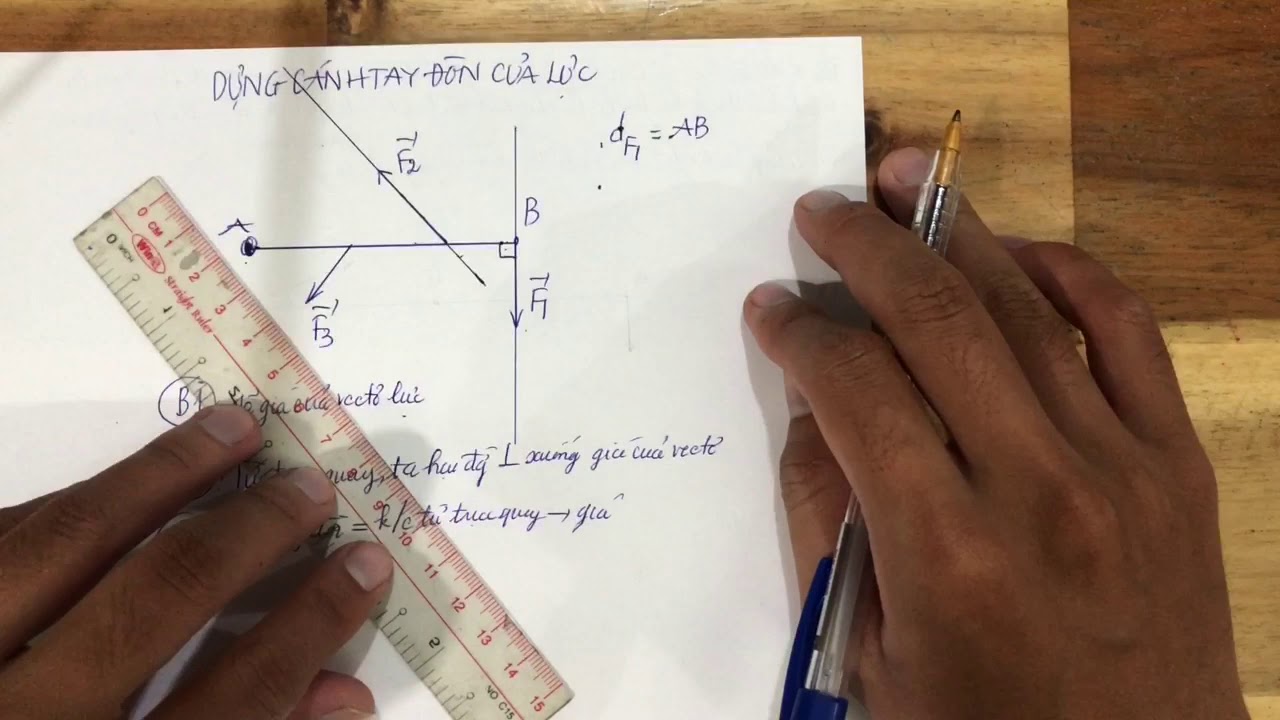 DỰNG CÁNH TAY ĐÒN CỦA LỰC
d_F1 = AB
F2
A
B
F3
F1
B1 giá của vectơ lực
Từ quay, ta hạ đg ⊥ xuống giá của vectơ
= k/c từ trục quay → giá
0 CM 1 2 3 4 5 7 9 10 11 12 13 14 15
WinQ Straight Ruler
0 INCH 1 2